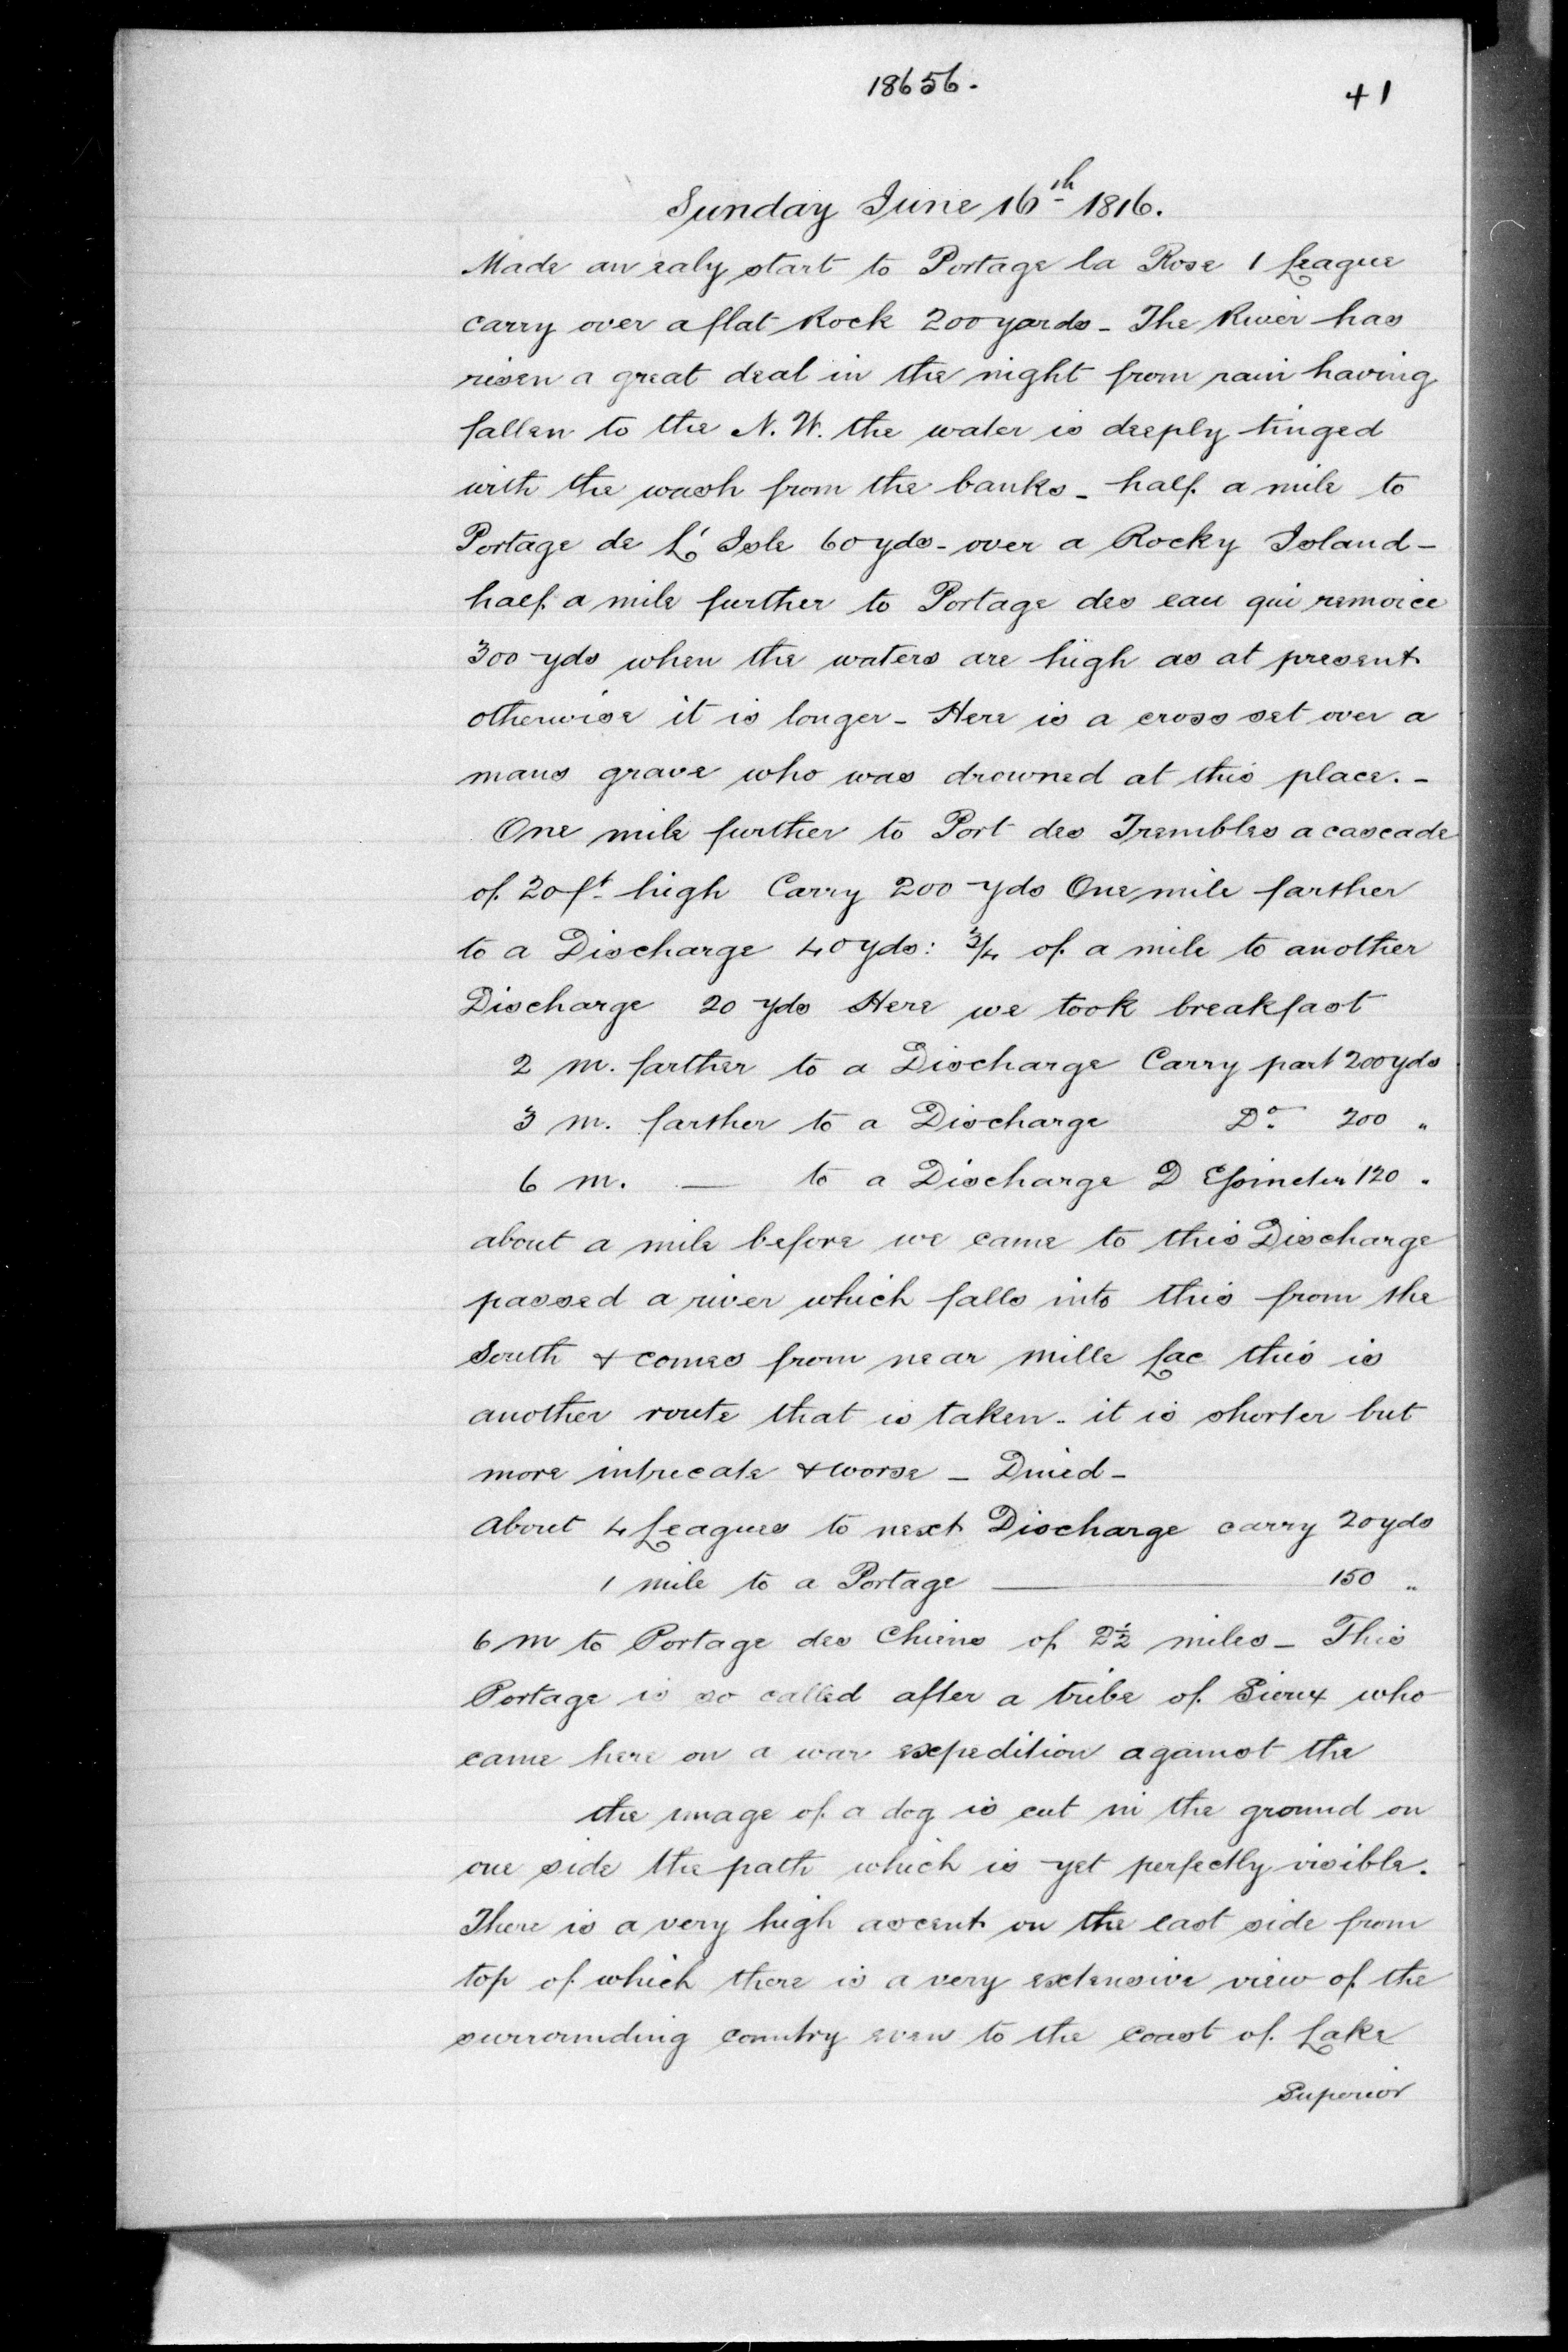 18656.
41
Sunday June 16th 1816.
Made an ealy start to Portage la Rose 1 League
carry over a flat Rock 200 yards - The River has
risen a great deal in the night from rain having
fallen to the N. W. the water is deeply tinged
with the wash from the banks - half a mile to
Portage de L'Isle 60 yds - over a Rocky Island -
half a mile further to Portage des eau qui remoice
300 yds when the waters are high as at present
otherwise it is longer - Here is a cross set over a
mans grave who was drowned at this place. -
One mile further to Port des Trembles a cascade
of 20 ft. high Carry 200 yds One mile farther
to a Discharge 40 yds: 3/4 of a mile to another
Discharge 20 yds Here we took breakfast
2 m. farther to a Discharge Carry part 200 yds
3 m. farther to a Discharge Do. 200 "
6 m. — to a Discharge D 120 "
about a mile before we came to this Discharge
passed a river which falls into this from the
South & comes from near mille Lac this is
another route that is taken - it is shorter but
more intrecate & worse - Dined -
About 4 Leagues to next Discharge carry 20 yds
1 mile to a Portage — 150 "
6 m to Portage des Chiens of 2½ miles - This
Portage is so called after a tribe of Sioux who
came here on a war expedition against the
the image of a dog is cut in the ground on
one side the path which is yet perfectly visible.
There is a very high ascent on the east side from
top of which there is a very extensive view of the
surrounding country even to the coast of Lake
Superior